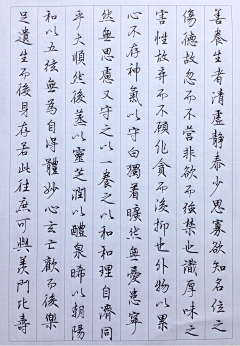 善養生者清虛靜泰少思寡欲知名位之
傷德故忽而不營非欲而強禁也識厚味之
害性故弃而不顧非貪而後抑也外物以累
心不存神氣以守白獨着曠然無憂患寂
然無思慮又守之以一養之以和和理自濟同
乎大順然後蒸以靈芝潤以醴泉晞以朝陽
和以五弦無為自得體妙心玄忘歡而後樂
足遺生而後身存若此往庶可與羨門比壽